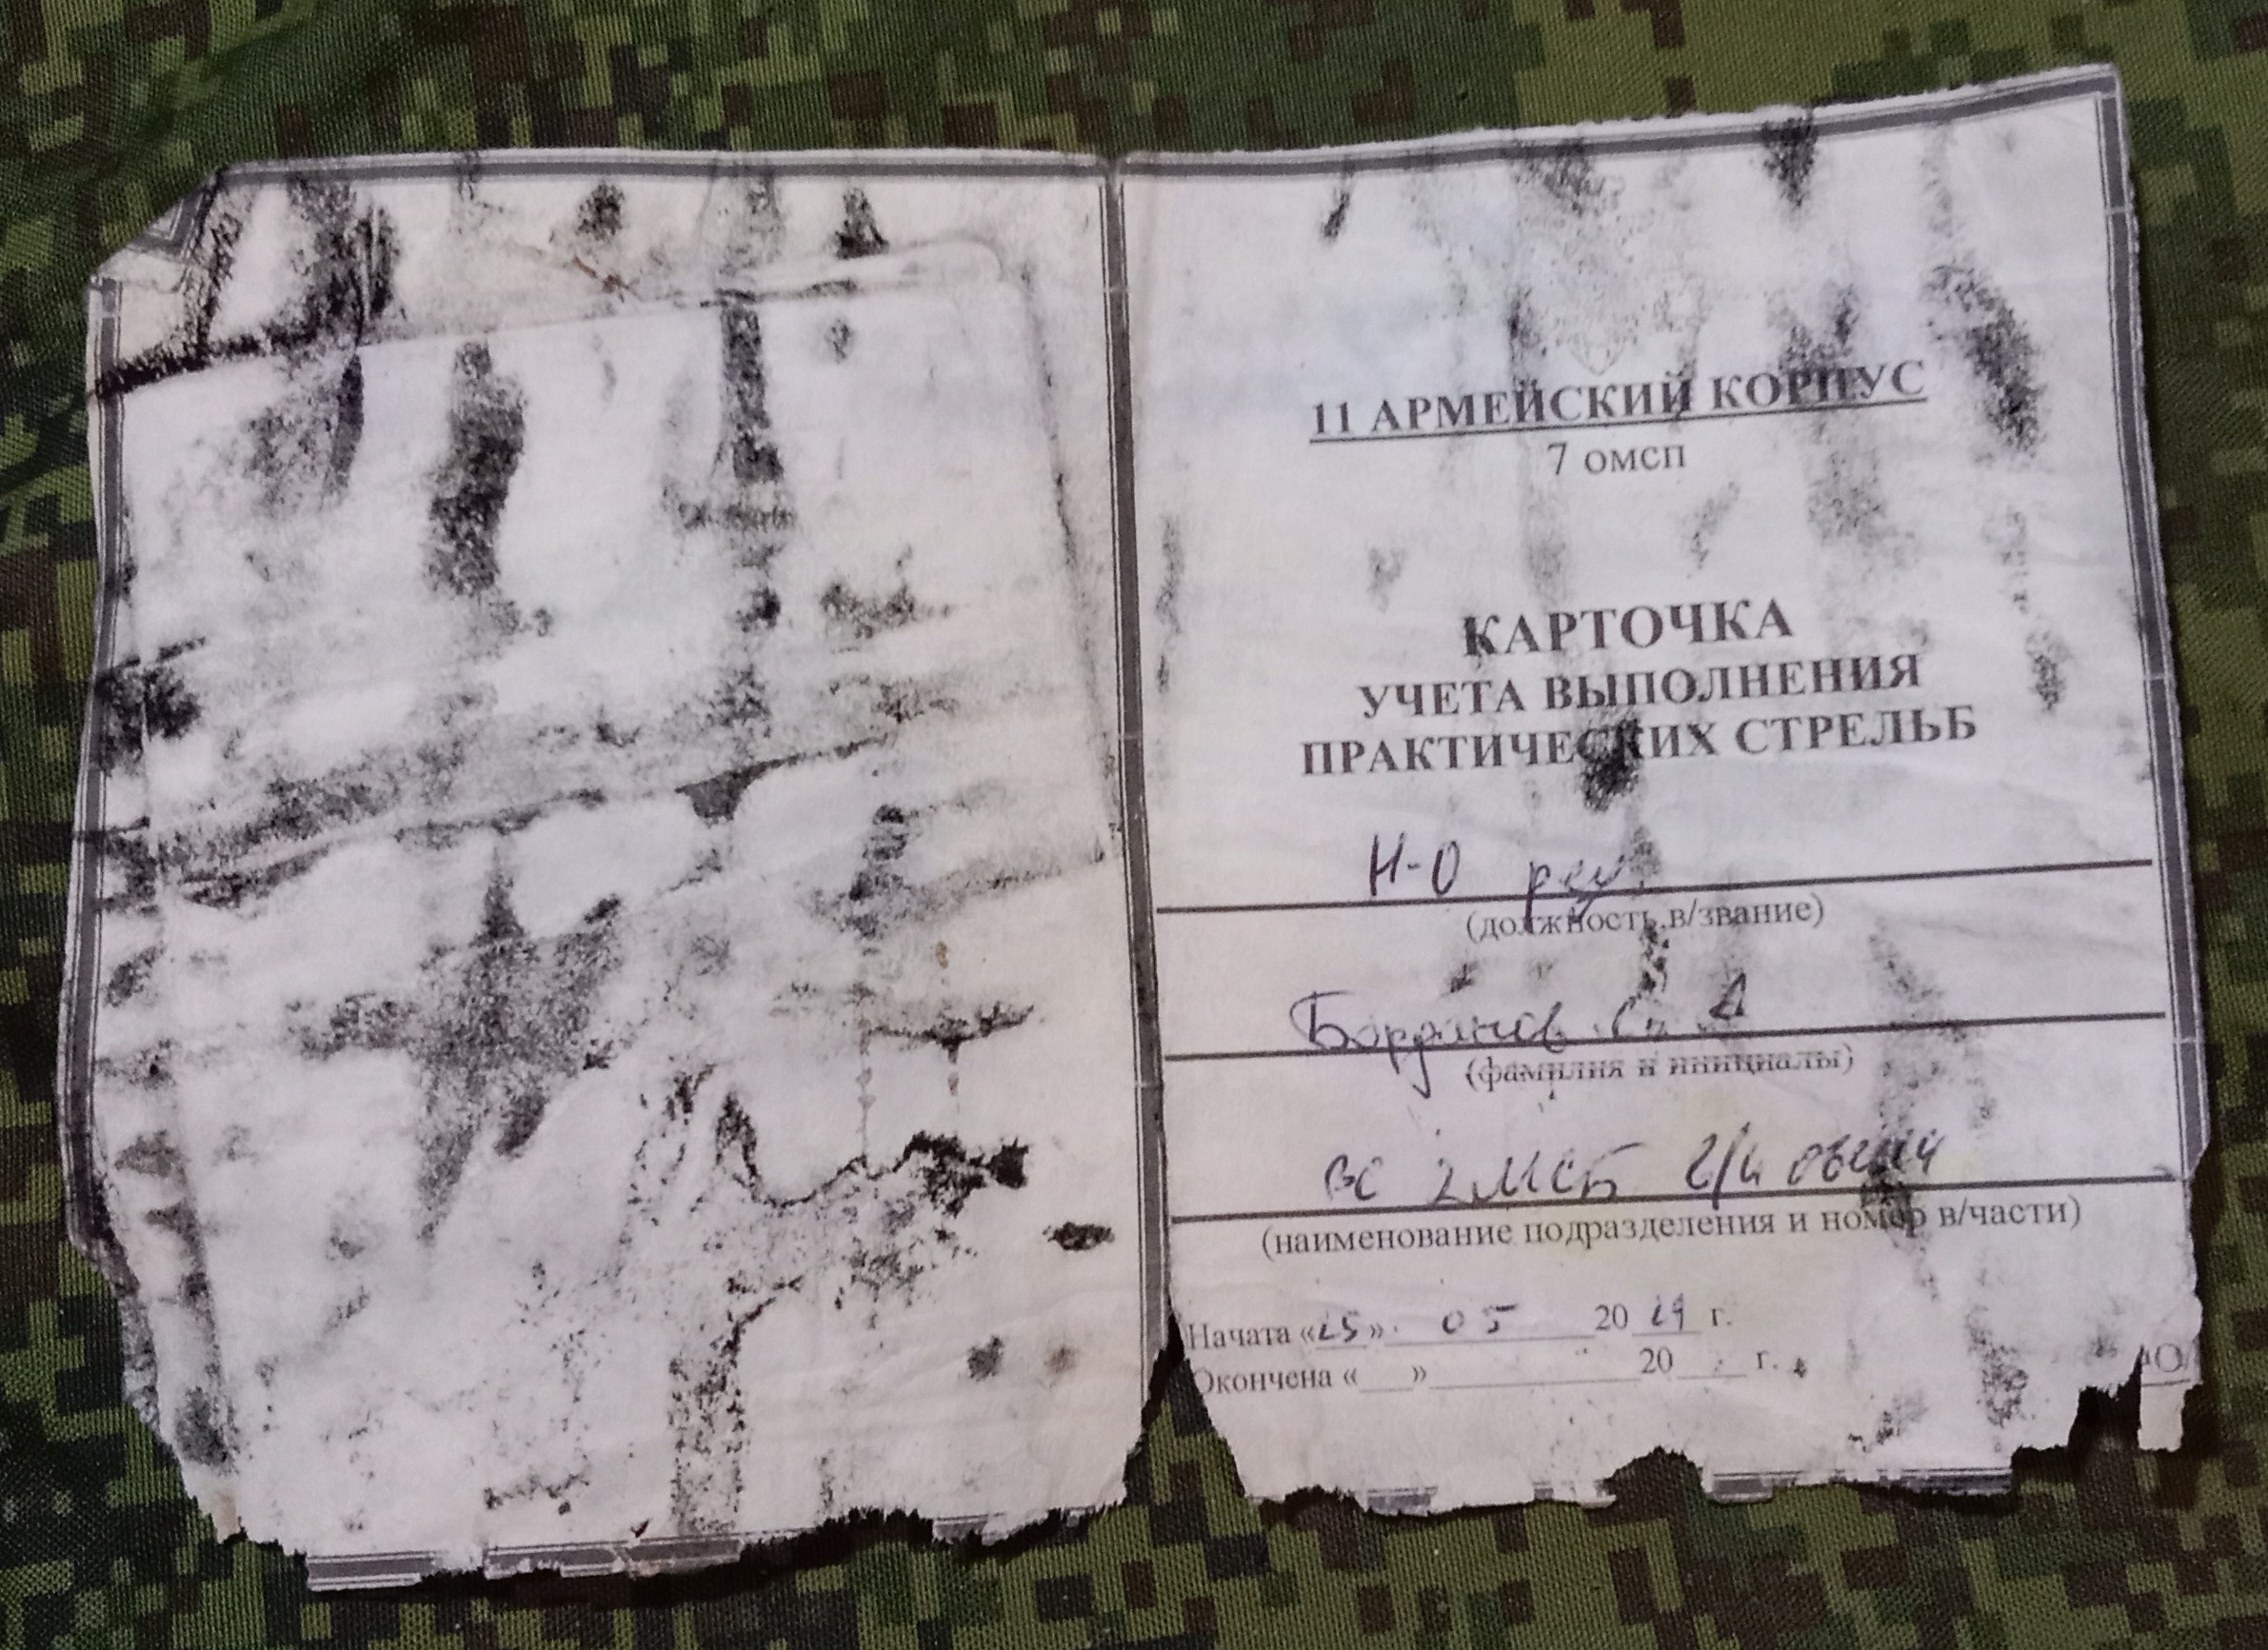 11 АРМЕЙСКИЙ КОРПУС
7 омсп
КАРТОЧКА
УЧЕТА ВЫПОЛНЕНИЯ
ПРАКТИЧЕСКИХ СТРЕЛЬБ
Н-О
(должность в/звание)
(фамилия и инициалы)
2 МСБ
(наименование подразделения и номер в/части)
Начата «25» 05 20 г.
Окончена «___» 20 г.